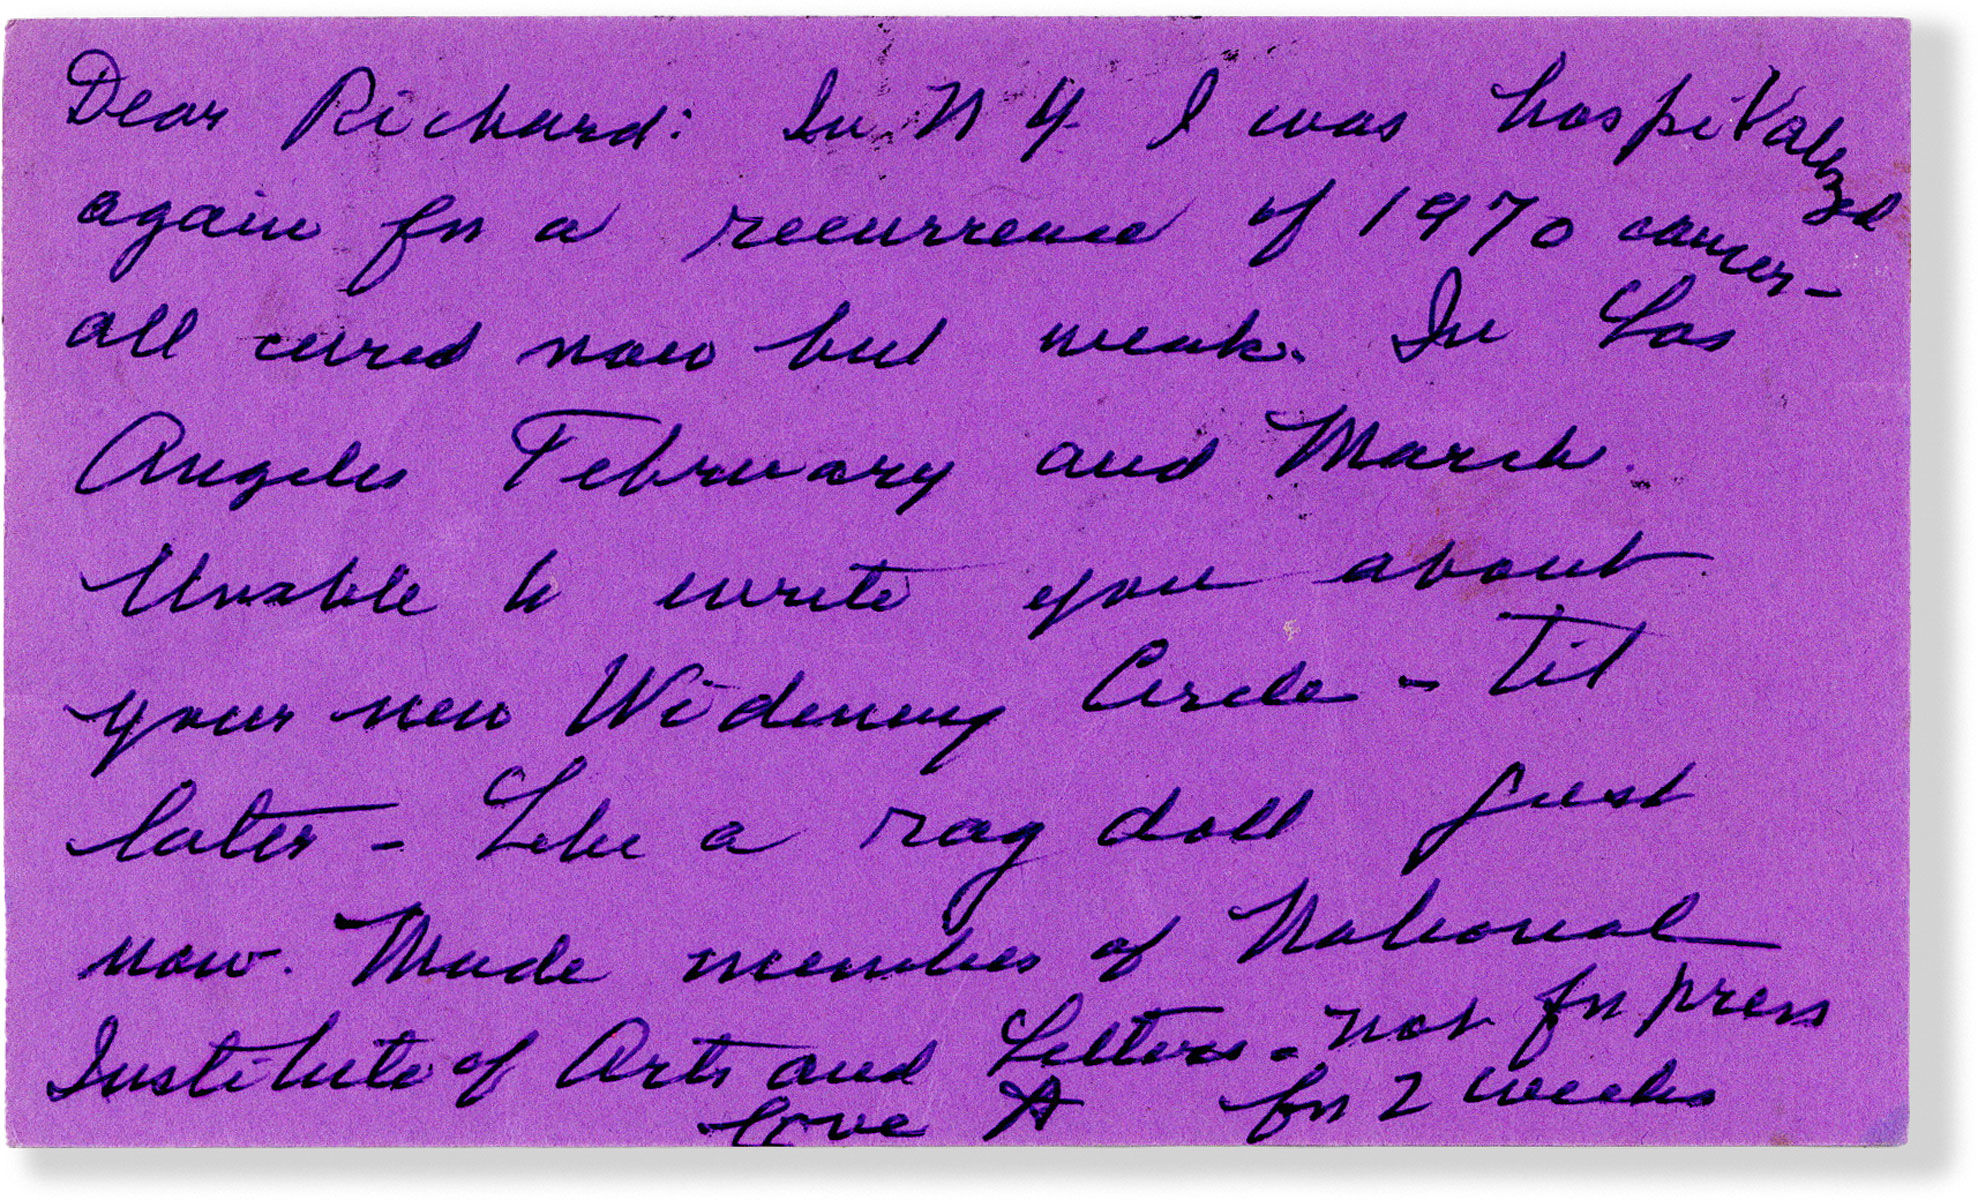 Dear Richard: In N Y I was hospitalized
again for a recurrence of 1970 cancer –
all cured now but weak. In Los
Angeles February and March.
Unable to write you about
your new Widening Circle – Til
later – Like a rag doll just
now. Made member of National
Institute of Arts and Letters – not for press
for 2 weeks
Love A